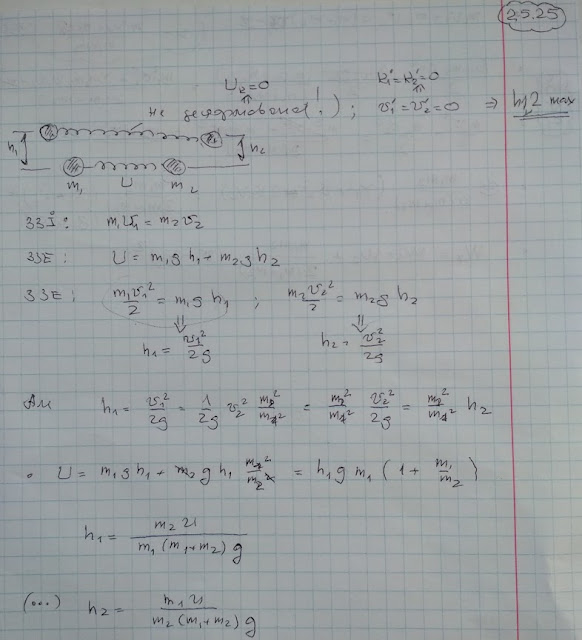 2.5.25
U₂=0 K₁'=K₂'=0
не деформована!); v₁'=v₂'=0 ⇒ h₁,2 max
h₁ h₂
m₁ U m₂
ЗЗІ: m₁v₁ = m₂v₂
ЗЗЕ: U = m₁gh₁ + m₂gh₂
ЗЗЕ: m₁v₁²/2 = m₁gh₁ ; m₂v₂²/2 = m₂gh₂
⇓ ⇓
h₁ = v₁²/2g h₂ = v₂²/2g
Але h₁ = v₁²/2g = 1/2g v₂² m₂²/m₁² = m₂²/m₁² v₂²/2g = m₂²/m₁² h₂
• U = m₁gh₁ + m₂gh₁ m₁²/m₂² = h₁gm₁(1 + m₁/m₂)
h₁ = m₂U/m₁(m₁+m₂)g
(...) h₂ = m₁U/m₂(m₁+m₂)g